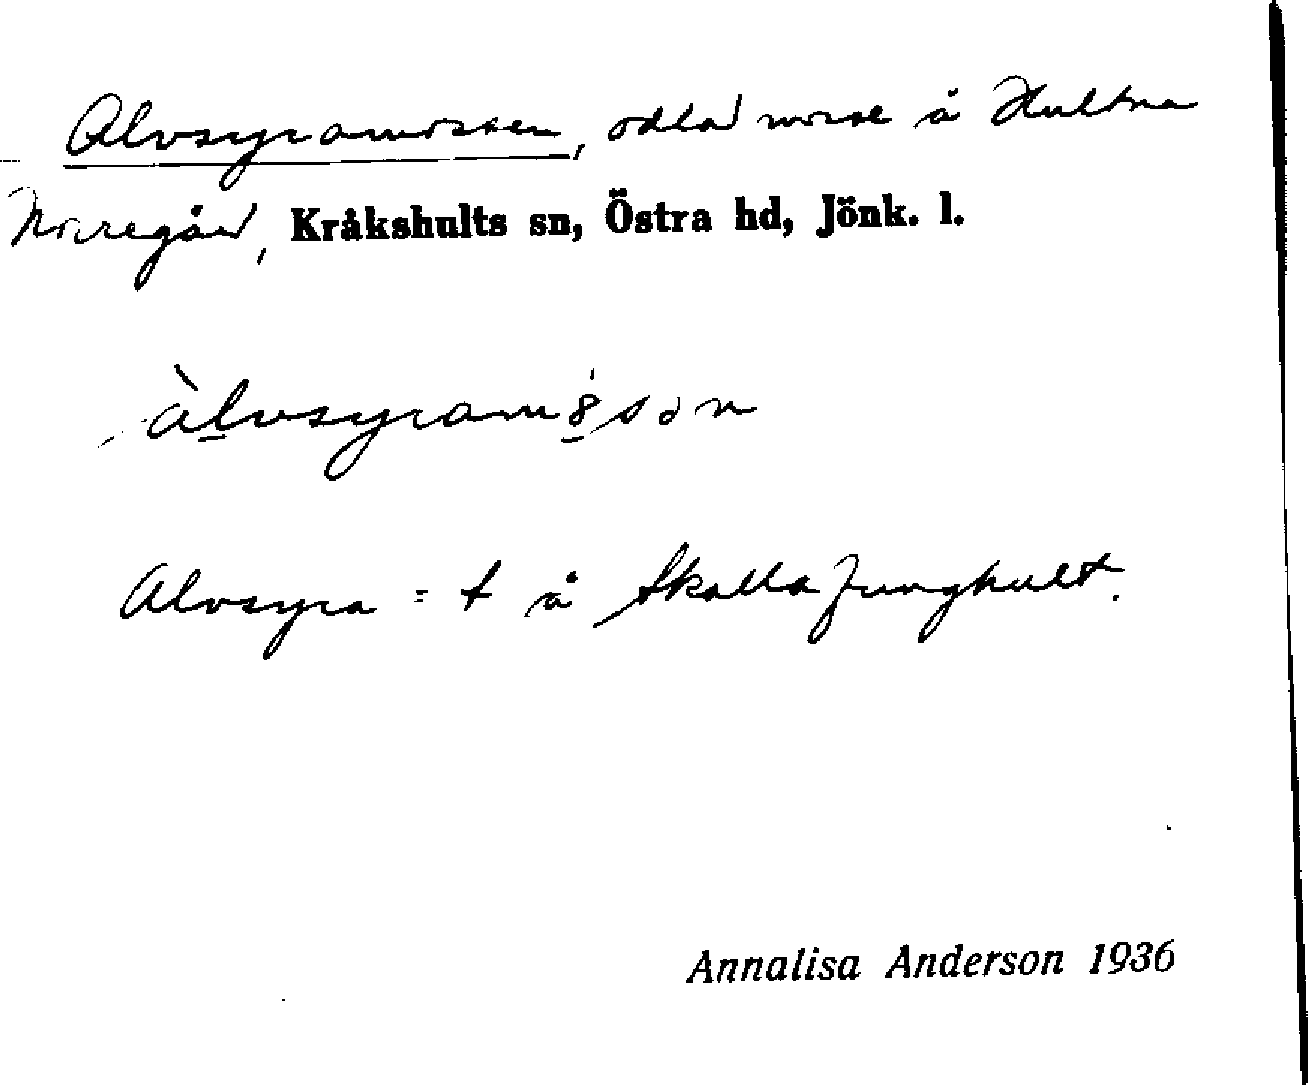 Alvsyramossen, odlad mosse å Hultna
Norregård, Kråkshults sn, Östra hd, Jönk. l.
àlvsyram8̀sən
Alvsyra = t å Skälla Ljunghult.
Annalisa Anderson 1936